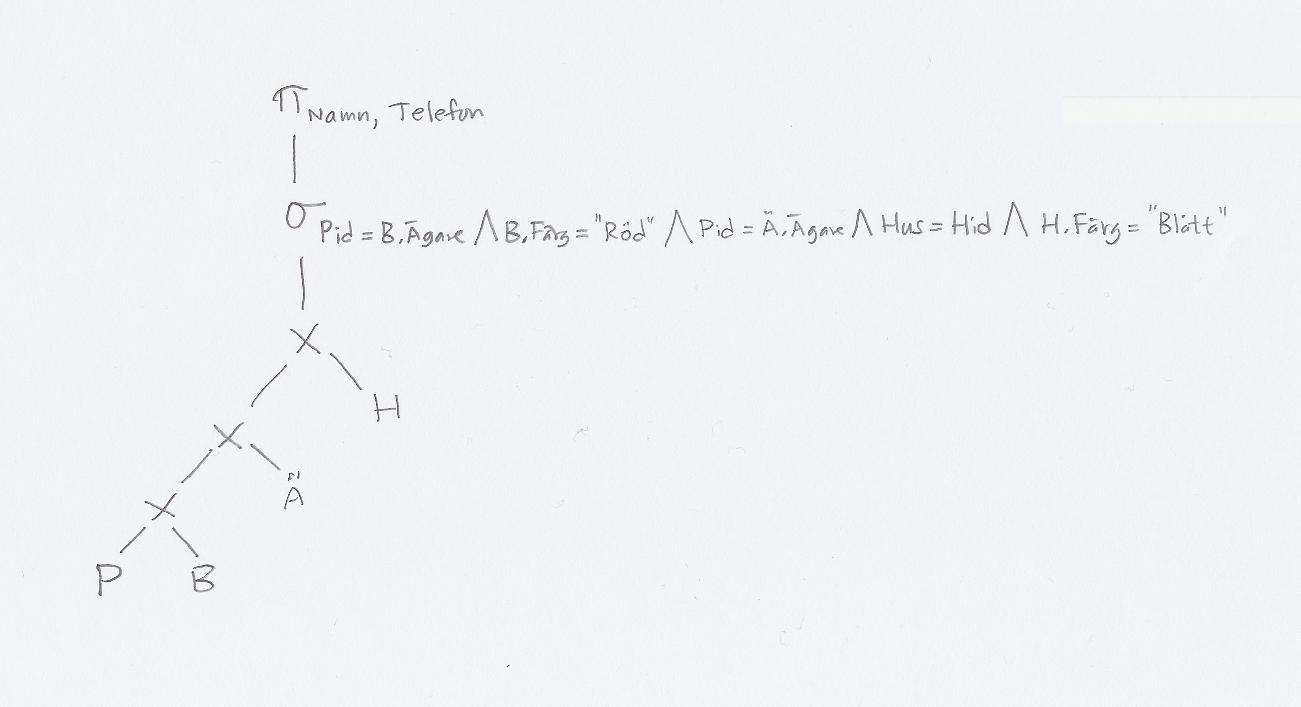 π Namn, Telefon
σ Pid = B.Ägare ∧ B.Färg = "Röd" ∧ Pid = Ä.Ägare ∧ Hus = Hid ∧ H.Färg = "Blått"
×
H
×
Ä
×
P B